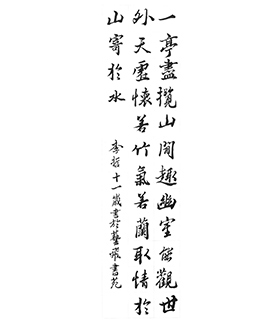 一亭盡攬山間趣幽室能觀世
外天虛懷若竹氣若蘭取情於
山寄於水
李哲十一歲書於藝耀書苑